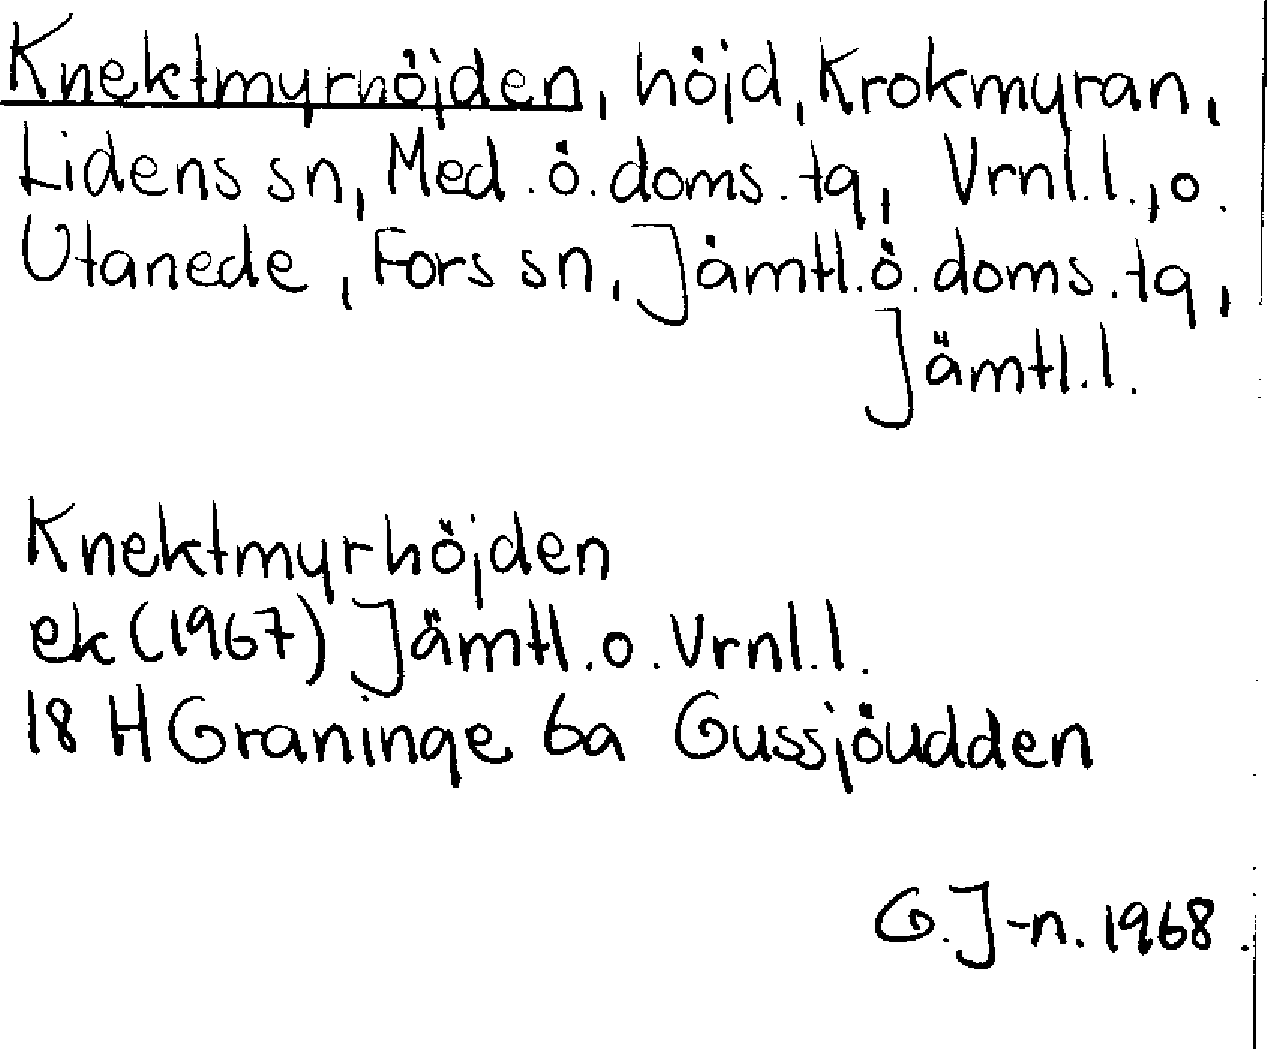 Knektmyrhöjden, höjd, Krokmyran,
Lidens sn, Med.ö.doms.tg, Vrnl.l., o.
Utanede, Fors sn, Jämtl.ö.doms.tg,
Jämtl.l.
Knektmyrhöjden
ek (1967) Jämtl.o.Vrnl.l.
18 H Graninge 6a Gussjöudden
G.J-n. 1968.